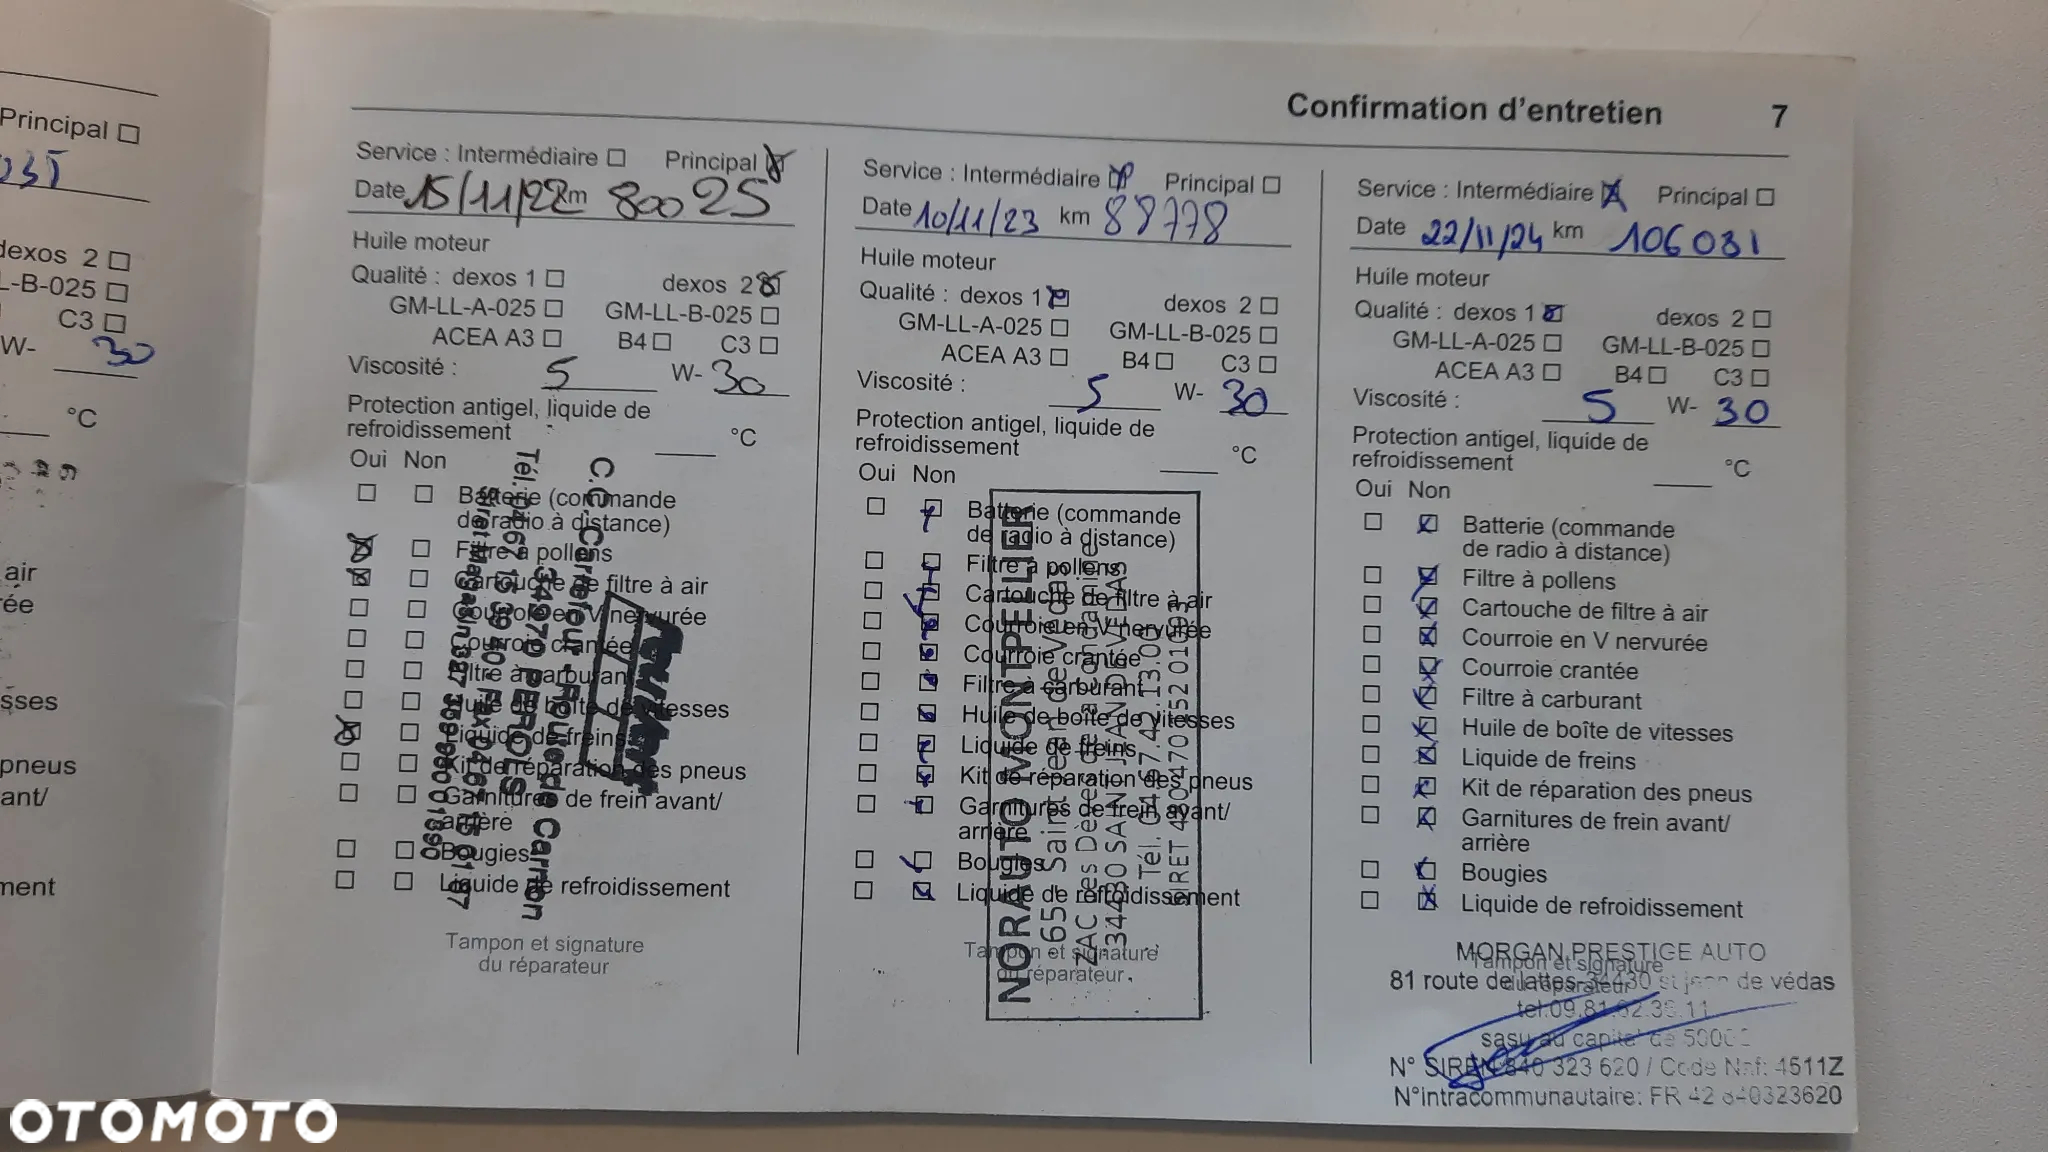 Principal
dexos 2
L-B-025
C3
W- 30
°C
air
rée
sses
pneus
ant/
ment
Confirmation d'entretien 7
Service : Intermédiaire Principal
Date 15/11/22 km 80025
Huile moteur
Qualité : dexos 1 dexos 2
GM-LL-A-025 GM-LL-B-025
ACEA A3 B4 C3
Viscosité : 5 W- 30
Protection antigel, liquide de
refroidissement °C
Oui Non
Batterie (commande
de radio à distance)
Filtre à pollens
Cartouche de filtre à air
Courroie en V nervurée
Courroie crantée
Filtre à carburant
Huile de boîte de vitesses
Liquide de freins
Kit de réparation des pneus
Garnitures de frein avant/
arrière
Bougies
Liquide de refroidissement
Tampon et signature
du réparateur
C.C. Carrefour - Route de Carnon
34970 PEROLS
Service : Intermédiaire Principal
Date 10/11/23 km 88778
Huile moteur
Qualité : dexos 1 dexos 2
GM-LL-A-025 GM-LL-B-025
ACEA A3 B4 C3
Viscosité : 5 W- 30
Protection antigel, liquide de
refroidissement °C
Oui Non
Batterie (commande
de radio à distance)
Filtre à pollens
Cartouche de filtre à air
Courroie en V nervurée
Courroie crantée
Filtre à carburant
Huile de boîte de vitesses
Liquide de freins
Kit de réparation des pneus
Garnitures de frein avant/
arrière
Bougies
Liquide de refroidissement
Tampon et signature
du réparateur
NORAUTO MONTPELLIER
Service : Intermédiaire Principal
Date 22/11/24 km 106031
Huile moteur
Qualité : dexos 1 dexos 2
GM-LL-A-025 GM-LL-B-025
ACEA A3 B4 C3
Viscosité : 5 W- 30
Protection antigel, liquide de
refroidissement °C
Oui Non
Batterie (commande
de radio à distance)
Filtre à pollens
Cartouche de filtre à air
Courroie en V nervurée
Courroie crantée
Filtre à carburant
Huile de boîte de vitesses
Liquide de freins
Kit de réparation des pneus
Garnitures de frein avant/
arrière
Bougies
Liquide de refroidissement
Tampon et signature
du réparateur
MORGAN PRESTIGE AUTO
81 route de lattes-34430 st jean de védas
sasu au capital de
N° SIREN 840 323 620 / Code Naf: 4511Z
N°Intracommunautaire: FR 42 840323620
OTOMOTO